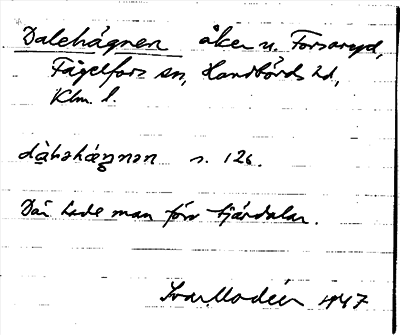 Dalehägnen åker u. Forsaryd,
Fågelfors sn, Handbörds hd,
Klm. l.
s. 126.
Där hade man förr tjärdalar.
Ivar Modéer 1947